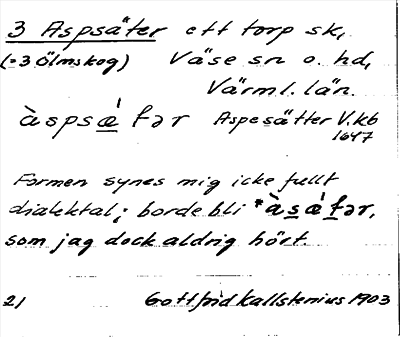 3 Aspsäter ett torp sk,
(=3 Ölmskog) Väse sn o. hd,
Värml. län.
àspsǽ fər Aspesätter V.kb
1647
Formen synes mig icke fullt
dialektal; borde bli *àsǽ fər,
som jag dock aldrig hört.
21 Gottfrid Kallstenius 1903